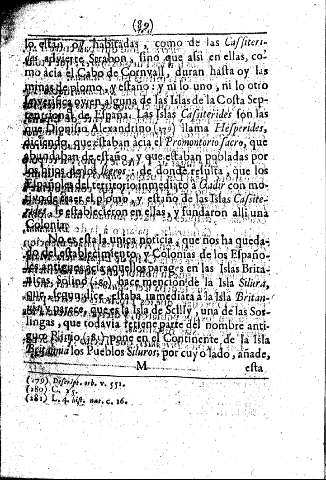 (89)
lo están oy habitadas, como de las Cassiteri-
des advierte Strabon, sino que assi en ellas, co-
mo acia el Cabo de Cornvall, duran hasta oy las
minas de plomo, y estaño: y ni lo uno, ni lo otro
se verifica oy en alguna de las Islas de la Costa Sep-
tentrional de España. Las Islas Cassiterides son las
que Dionisio Alexandrino (179) llama Hesperides,
diciendo, que estaban acia el Promontorio sacro, que
abundaban de estaño, y que estaban pobladas por
los hijos de los Iberos: de donde resulta, que los
Españoles del territorio inmediato à Gadir con mo-
tivo de traer el plomo, y estaño de las Islas Cassite-
rides, se establecieron en ellas, y fundaron alli una
Colonia.
No es esta la unica noticia, que nos ha queda-
do del establecimiento, y Colonias de los Españo-
les antiguos acia aquellos parages en las Islas Brita-
nicas. Solino (180) hace mencion de la Isla Silura,
que estaba immediata à la Isla Britan-
y parece, que es la Isla de Scilly, una de las Sor-
lingas, que todavia retiene parte del nombre anti-
guo. Plinio (181) pone en el Continente de la Isla
Britanna los Pueblos Siluros; por cuyo lado, añade,
M esta
(179) Descript. orb. v. 552.
(180) C. 25.
(181) L. 4. hist. nat. c. 16.